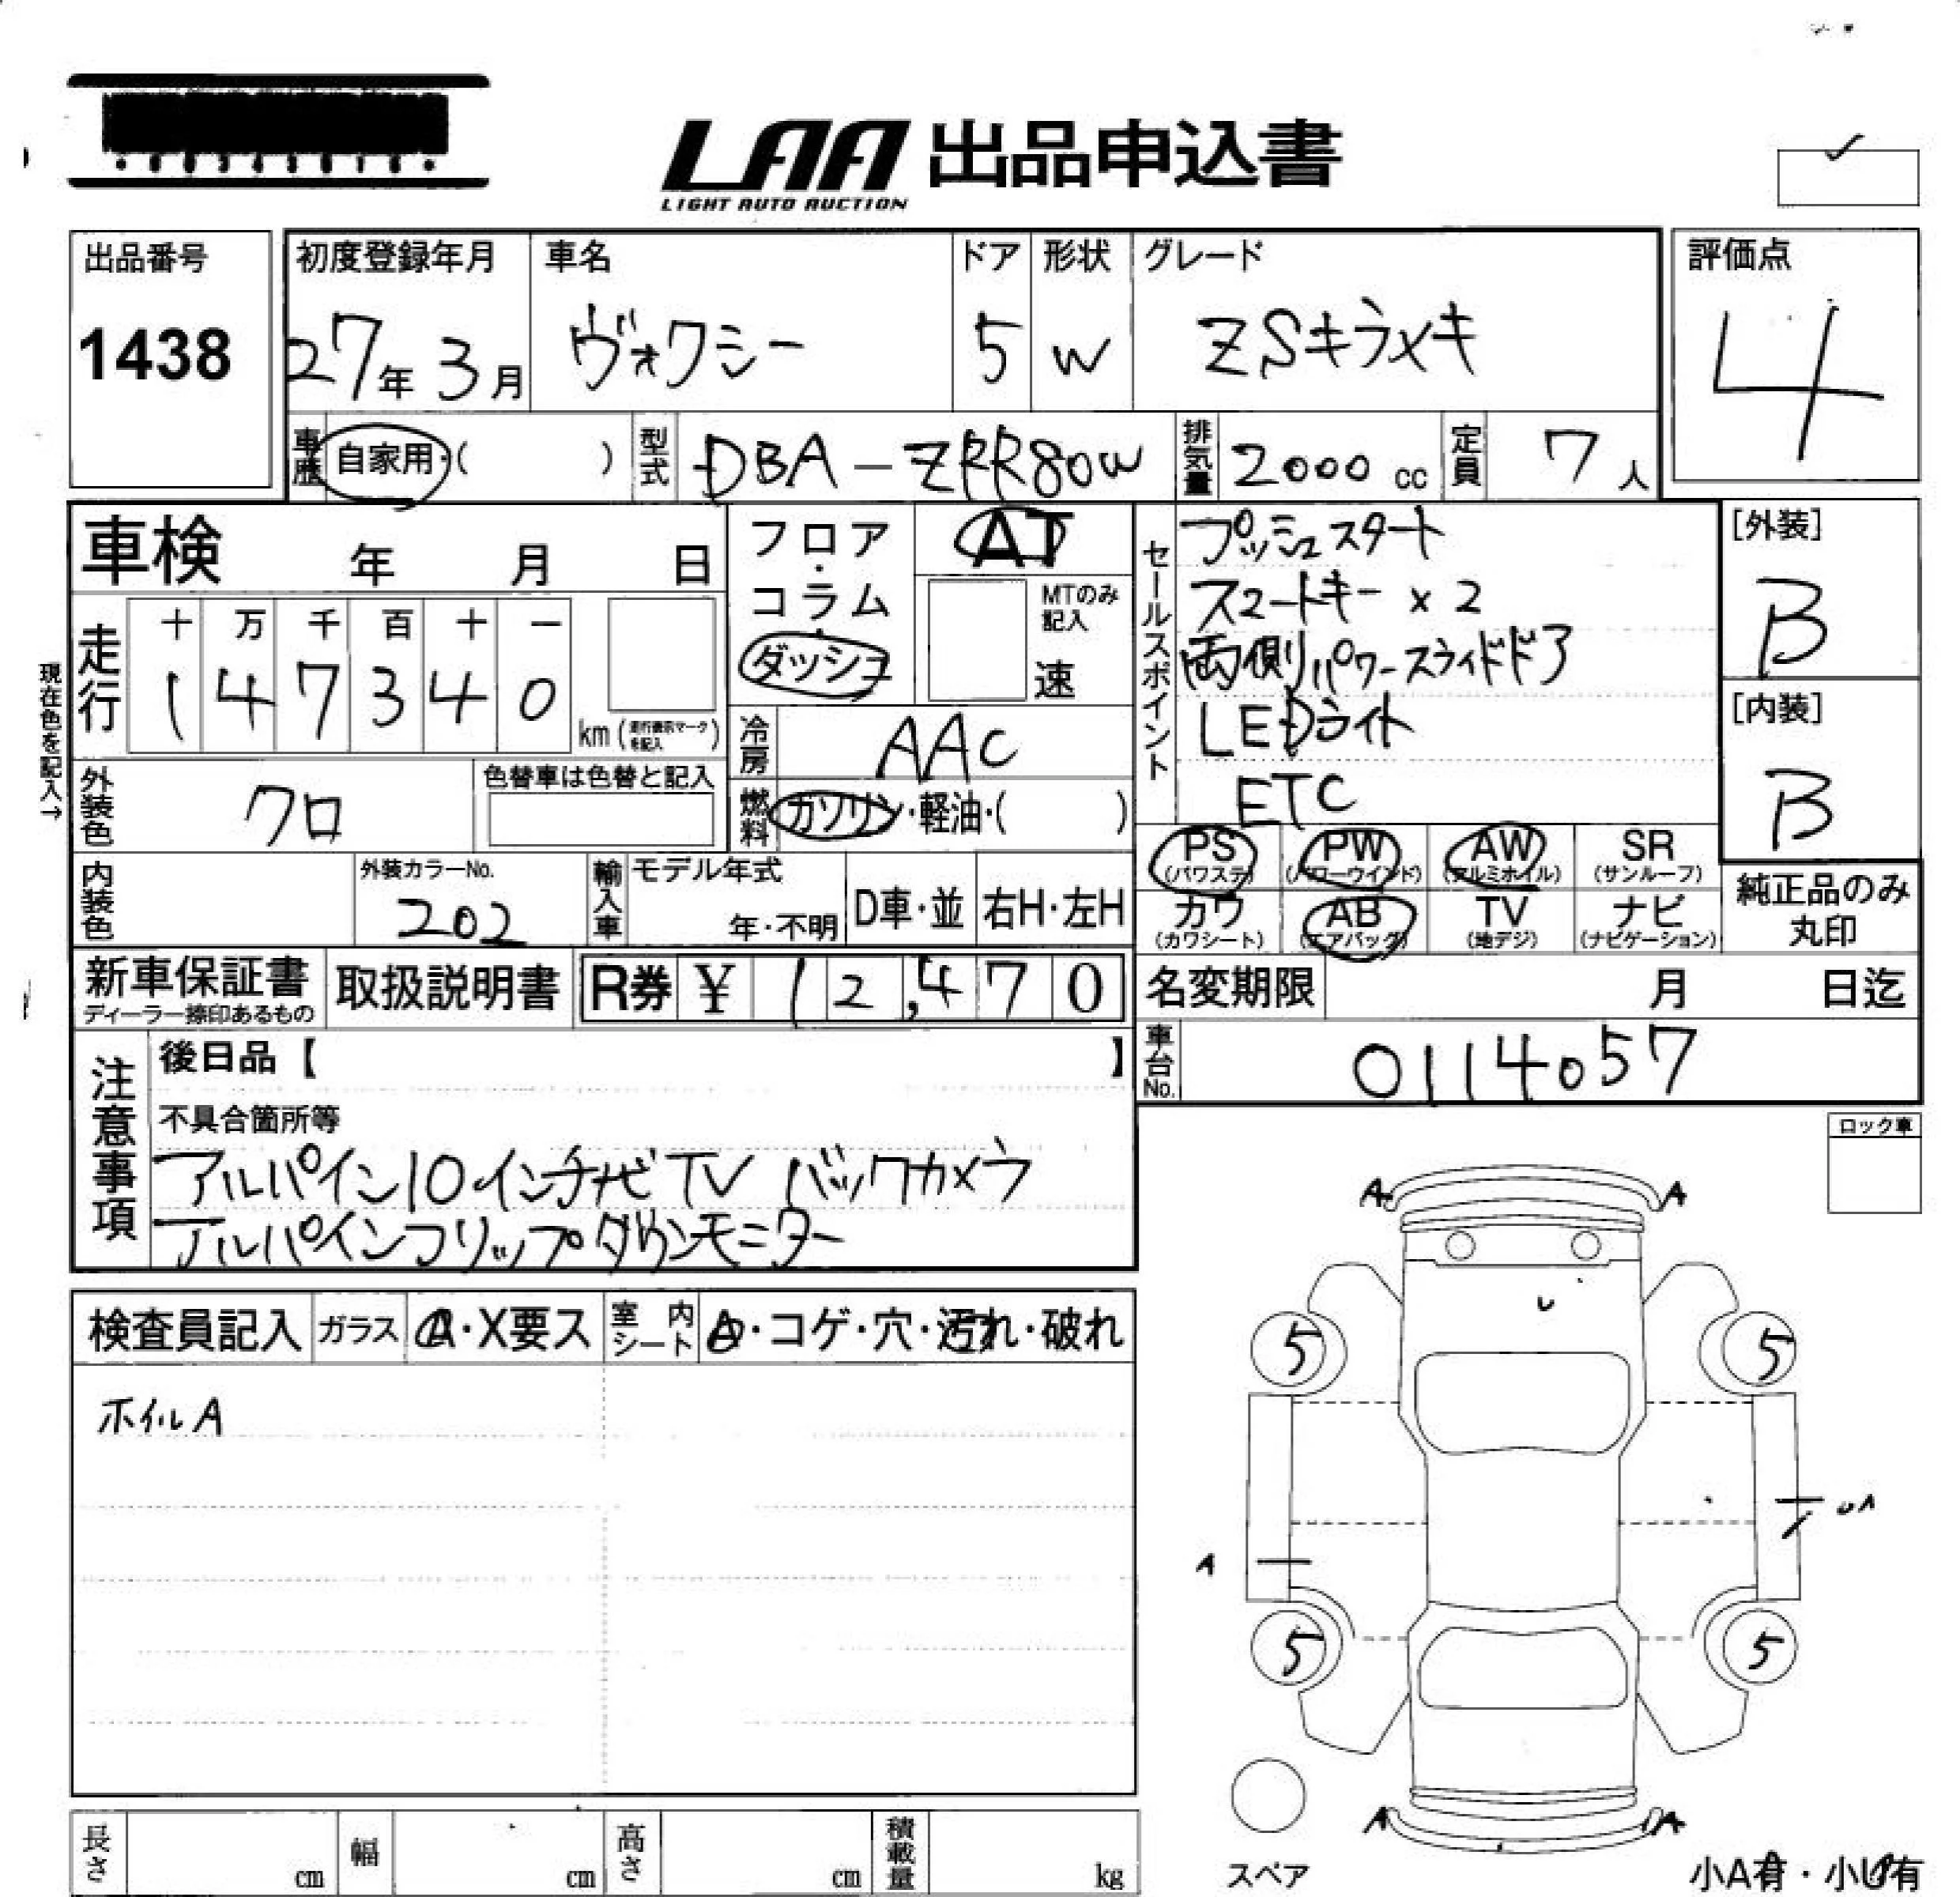 LAA 出品申込書
LIGHT AUTO AUCTION
出品番号
1438
初度登録年月
27年 3月
車名
ヴォクシー
ドア
5
形状
W
グレード
ZSキラメキ
評価点
4
車歴 自家用・( )
型式 DBA-ZRR80W
排気量 2000 cc
定員 7人
車検 年 月 日
走行
十 万 千 百 十 一
1 4 7 3 4 0
km(走行表示マークを記入)
現在色を記入→
外装色 クロ
色替車は色替と記入
内装色
外装カラーNo.
202
フロア・コラム・ダッシュ
AT
MTのみ記入
速
冷房 AAC
燃料 ガソリン・軽油・( )
輸入車 モデル年式
年・不明
D車・並
右H・左H
セールスポイント
プッシュスタート
スマートキー×2
両側パワースライドドア
LEDライト
ETC
[外装]
B
[内装]
B
PS (パワステ)
PW (パワーウインド)
AW (アルミホイル)
SR (サンルーフ)
カワ (カワシート)
AB (エアバッグ)
TV (地デジ)
ナビ (ナビゲーション)
純正品のみ
丸印
新車保証書
ディーラー捺印あるもの
取扱説明書
R券 ¥ 12,470
名変期限 月 日迄
車台No. 0114057
注意事項
後日品【 】
不具合箇所等
アルパイン10インチナビTV バックカメラ
アルパインフリップダウンモニター
ロック車
検査員記入
ガラス
A・X要ス
室内シート
A・コゲ・穴・汚れ・破れ
ホイルA
A A
5 5
A
UA
5 5
A A
スペア
小A有・小U有
長さ cm
幅 cm
高さ cm
積載量 kg